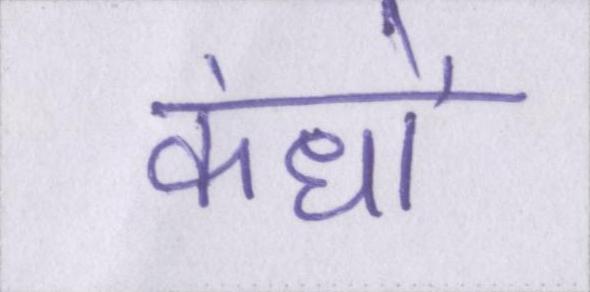 कंधों